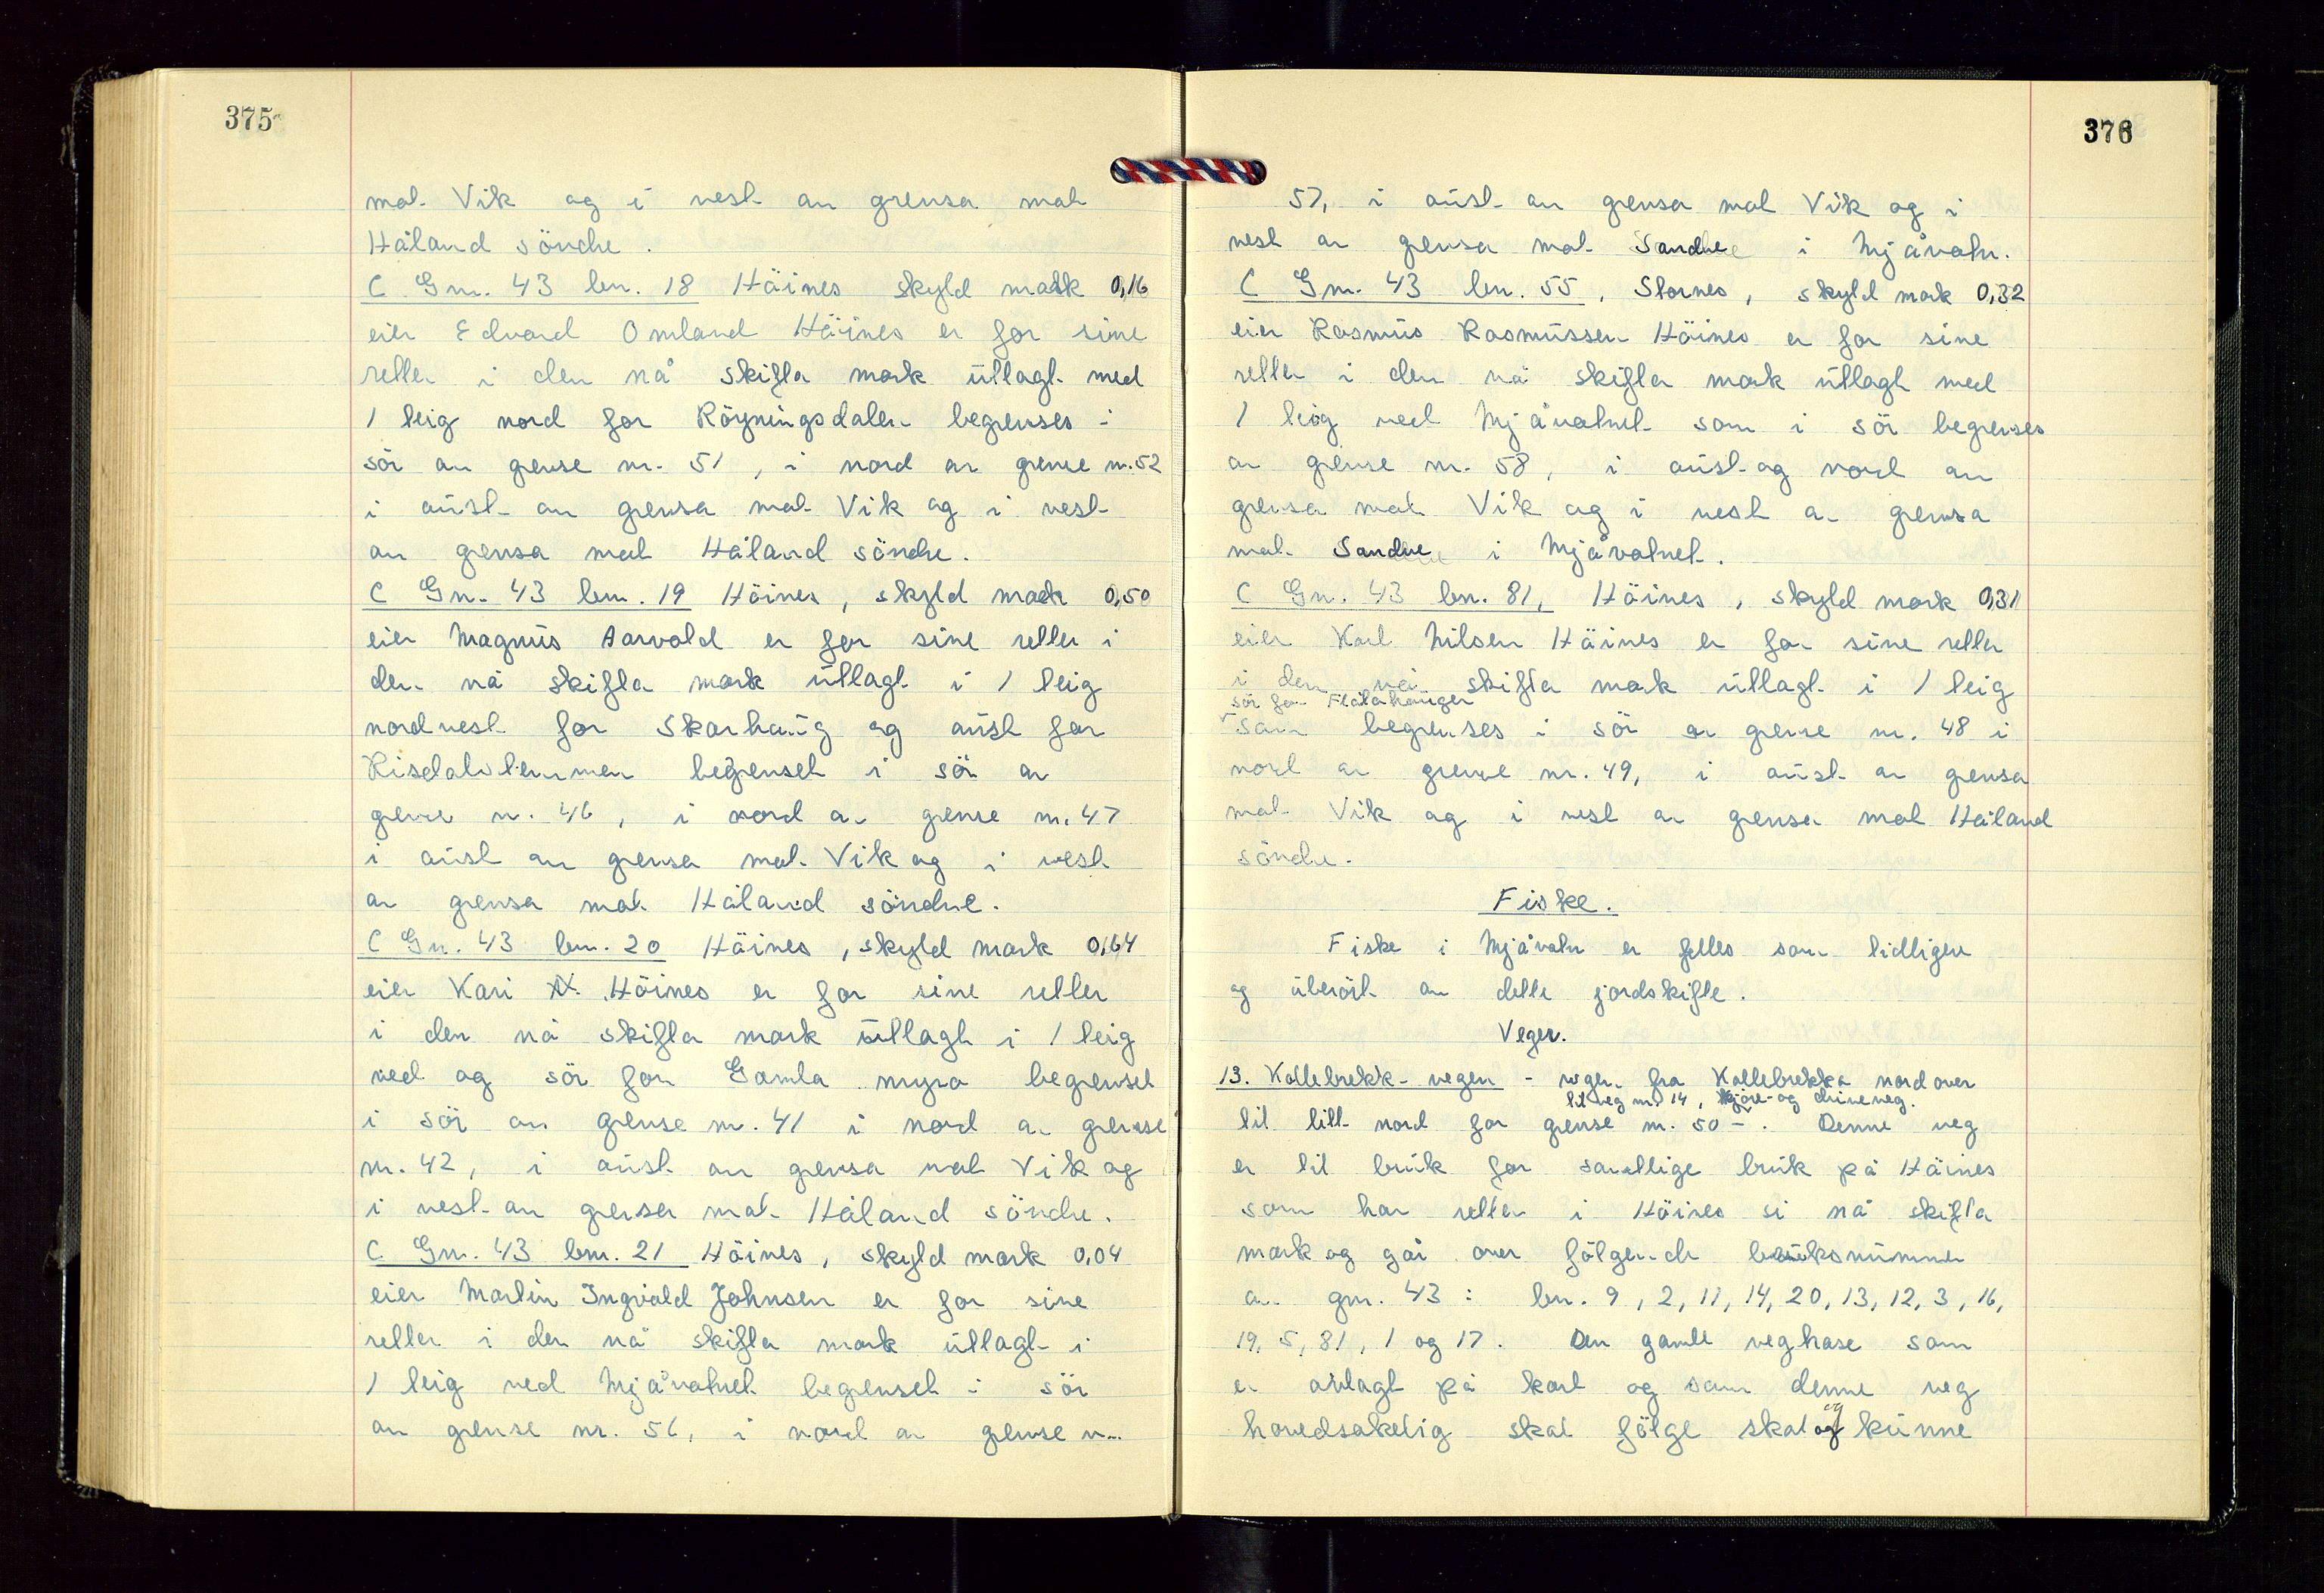 375
mot Vik og i vest av grensa mot
Håland söndre.
C Gnr. 43 bnr. 18 Höines skyld mark 0,16
eier Edvard Omland Höines er for sine
retter i den nå skifta mark utlagt med
1 teig nord for Röyningsdalen begrenses i
sör av grense nr. 51, i nord av grense nr. 52
i aust av grensa mot Vik og i vest
av grensa mot Håland söndre.
C Gnr. 43 bnr. 19 Höines, skyld mark 0,50
eier Magnus Aarvold er for sine retter i
den nå skifta mark utlagt i 1 teig
nordvest for Skarhaug og aust for
Risdalstemmen begrenset i sör av
grense nr. 46, i nord av grense nr. 47
i aust av grensa mot Vik og i vest
av grensa mot Håland söndre.
C Gnr. 43 bnr. 20 Höines, skyld mark 0,64
eier Kari N. Höines er for sine retter
i den nå skifta mark utlagt i 1 teig
ved og sör for Gamla myra begrenset
i sör av grense nr. 41 i nord av grense
nr. 42, i aust av grensa mot Vik og
i vest av grensa mot Håland söndre.
C Gnr. 43 bnr. 21 Höines, skyld mark 0,04
eier Martin Ingvald Johnsen er for sine
retter i den nå skifta mark utlagt i
1 teig ved Mjåvatnet begrenset i sör
av grense nr. 56, i nord av grense nr.
376
57, i aust av grensa mot Vik og i
vest av grensa mot Sandve i Mjåvatn.
C Gnr. 43 bnr. 55, Stornes, skyld mark 0,32
eier Rasmus Rasmussen Höines er for sine
retter i den nå skifta mark utlagt med
1 teig ved Mjåvatnet som i sör begrenses
av grense nr. 58, i aust og nord av
grensa mot Vik og i vest av grensa
mot Sandve i Mjåvatnet.
C Gnr. 43 bnr. 81, Höines, skyld mark 0,31
eier Karl Nilsen Höines er for sine retter
i den nå skifta mark utlagt i 1 teig
sör for Flåtahauger
som begrenses i sör av grense nr. 48 i
nord av grense nr. 49, i aust av grensa
mot Vik og i vest av grensa mot Håland
söndre.
Fiske.
Fiske i Mjåvatn er felles som tidligere
og uberört av dette jordskifte.
Veger.
13. Kollebrekk-vegen - vegen fra Kollebrekka nordover
til veg nr. 14, kjöre- og driveveg.
til litt nord for grense nr. 50 -. Denne veg
er til bruk for samtlige bruk på Höines
som har retter i Höines si nå skifta
mark og går over fölgende bruksnummer
av gnr. 43: bnr. 9, 2, 11, 14, 20, 13, 12, 3, 16,
19, 5, 81, 1 og 17. Den gamle veghase som
er avlagt på kart og som denne veg
hovedsakelig skal fölge skal og kunne